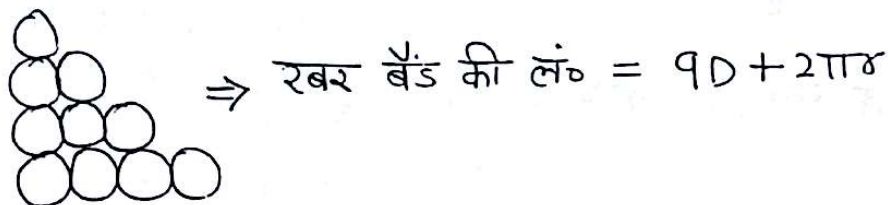 ⇒ रबर बैंड की लं० = 9D + 2πr